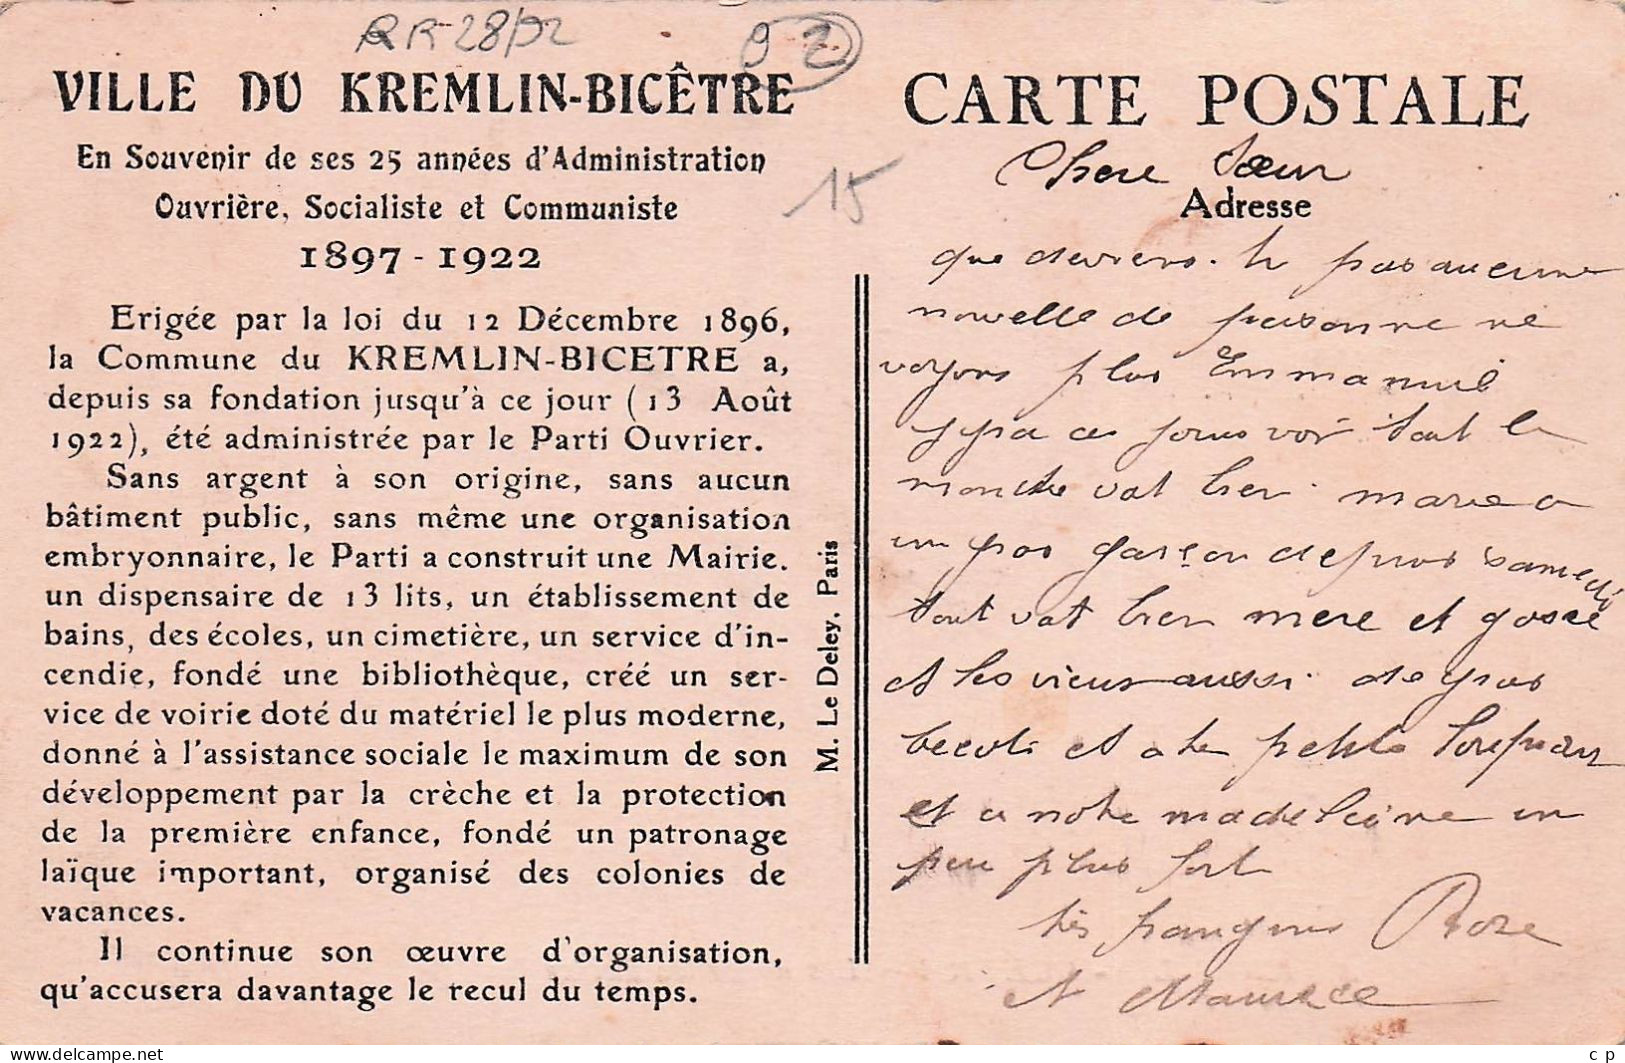 RR-28/92
92
VILLE DU KREMLIN-BICÊTRE
En Souvenir de ses 25 années d'Administration
Ouvrière, Socialiste et Communiste
1897 - 1922
Erigée par la loi du 12 Décembre 1896,
la Commune du KREMLIN-BICETRE a,
depuis sa fondation jusqu'à ce jour (13 Août
1922), été administrée par le Parti Ouvrier.
Sans argent à son origine, sans aucun
bâtiment public, sans même une organisation
embryonnaire, le Parti a construit une Mairie.
un dispensaire de 13 lits, un établissement de
bains, des écoles, un cimetière, un service d'in-
cendie, fondé une bibliothèque, créé un ser-
vice de voirie doté du matériel le plus moderne,
donné à l'assistance sociale le maximum de son
développement par la crèche et la protection
de la première enfance, fondé un patronage
laïque important, organisé des colonies de
vacances.
Il continue son œuvre d'organisation,
qu'accusera davantage le recul du temps.
M. Le Deley, Paris
15
CARTE POSTALE
Chere Sœur
Adresse
que deviens. tu pas aucune
nouvelle de personne ne
voyons plus Emmanuel
ces jours voir tout le
monde vat bien. marie a
un gros garçon depuis samedi
tout vat bien mere et gosse
et les vieux aussi. de gros
becots et a ta petite
et a notre madeleine un
peu plus fort
tes frangins Rose
et Maurice
c p